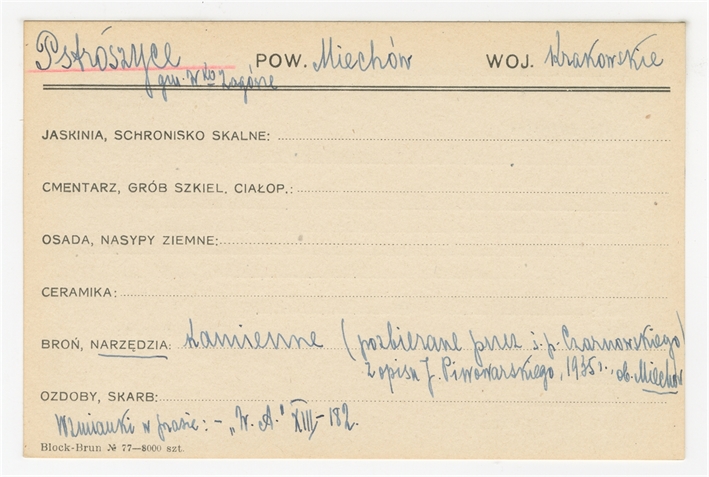 Pstrószyce POW. Miechów WOJ. Krakowskie
gm. Wko Zagórze
JASKINIA, SCHRONISKO SKALNE:
CMENTARZ, GRÓB SZKIEL. CIAŁOP.:
OSADA, NASYPY ZIEMNE:
CERAMIKA:
BROŃ, NARZĘDZIA: kamienne (pozbierane przez ś.p. Czarnowskiego)
z opisu J. Piwowarskiego, 1935 r., ob. Miechów
OZDOBY, SKARB:
Wzmianki w prasie: – „W. A.” XIII – 182.
Block-Brun № 77—8000 szt.